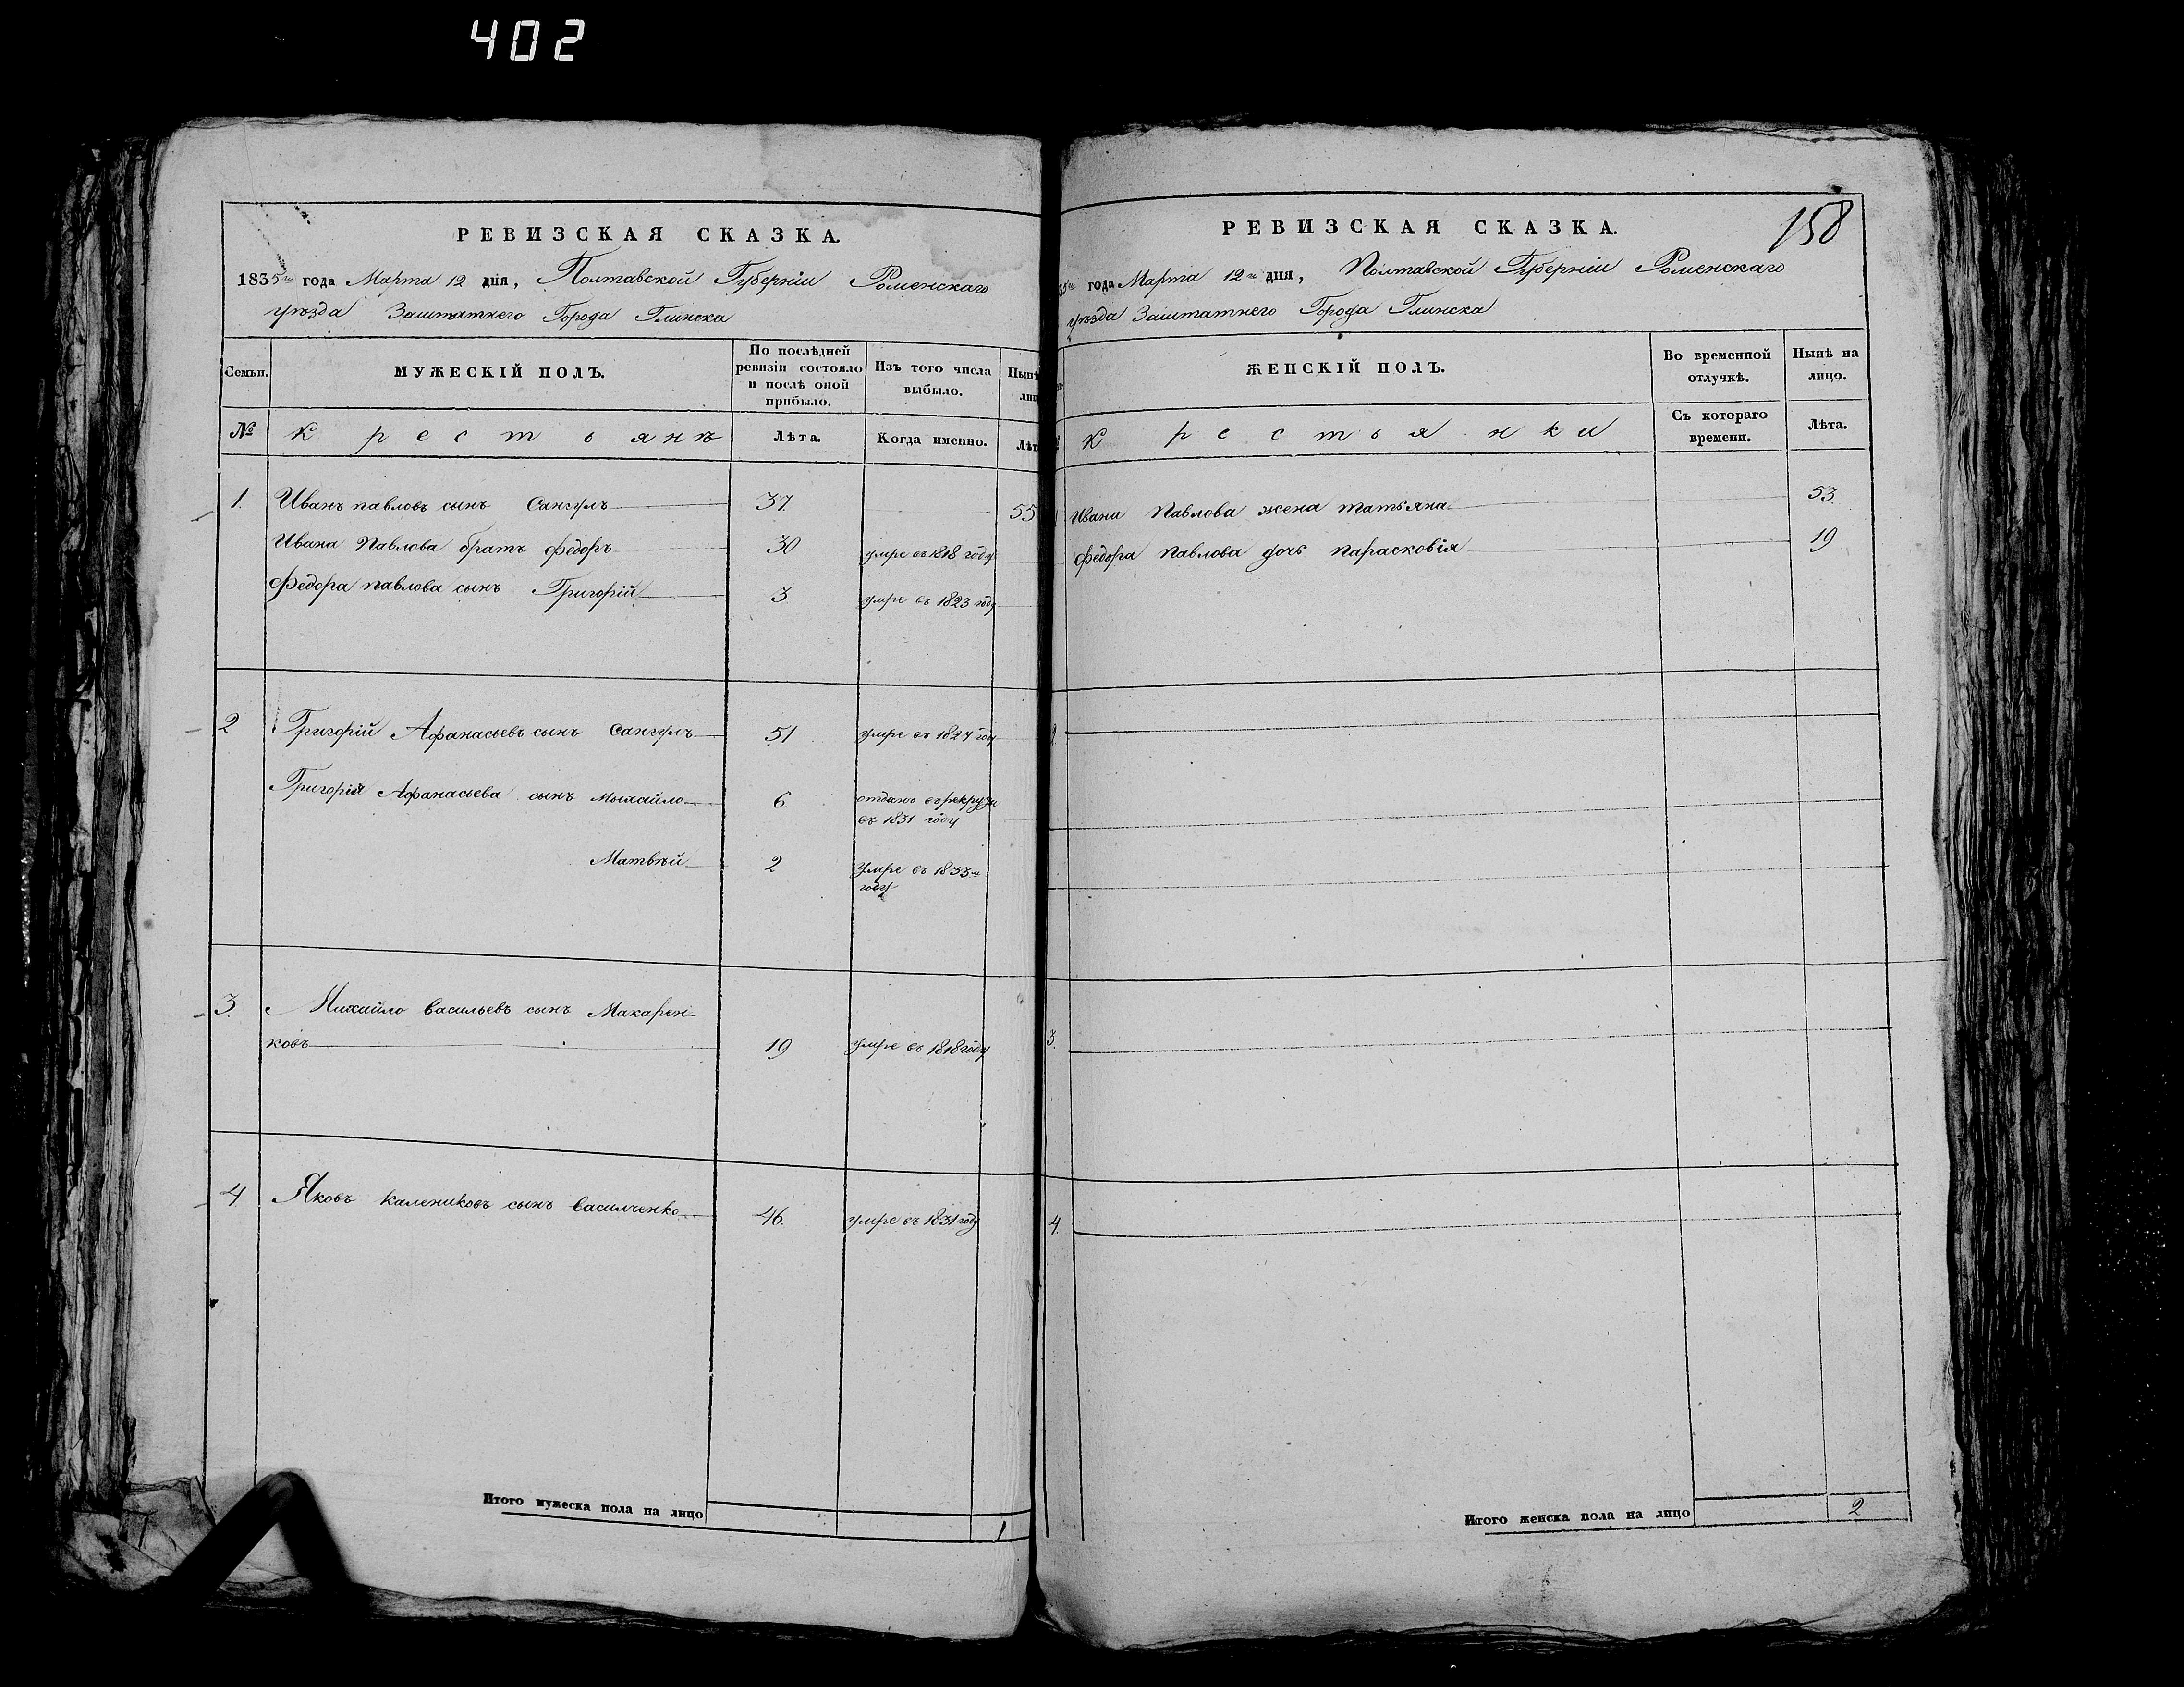 402
РЕВИЗСКАЯ СКАЗКА.
1835го года Марта 12 дня, Полтавской Губерніи Роменскаго
уѣзда Заштатнего Города Глинска
Семьи.
МУЖЕСКІЙ ПОЛЪ.
По послѣдней ревизіи состояло и послѣ оной прибыло.
Изъ того числа выбыло.
Нынѣ
лиц
№
Крестьянъ
Лѣта.
Когда именно.
Лѣт
1. Иванъ павловъ сынъ Сангулъ 37. 55
Ивана Павлова братъ федоръ 30 умре въ 1818 году
Федора павлова сынъ Григорій 3 умре въ 1823 году
2 Григорій Афанасьевъ сынъ Сангулъ 51 умре въ году
Григорія Афанасьева сынъ Михайло 6. отданъ въ рекруты
въ 1831 году
Матвѣй 2 Умре въ 1833м
году
3. Михайло васильевъ сынъ Макарен-
ковъ 19 умре въ 1818 году
4 Яковъ калениковъ сынъ василченко 46. умре въ 1831 году
Итого мужеска пола на лицо
1
158
РЕВИЗСКАЯ СКАЗКА.
35го года Марта 12го дня, Полтавской Губерніи Роменскаго
уѣзда Заштатнего Города Глинска
ЖЕНСКІЙ ПОЛЪ.
Во временной отлучкѣ.
Нынѣ на лицо.
Крестьянки
Съ котораго времени.
Лѣта.
Ивана Павлова жена татьяна 53
Федора павлова дочь парасковія 19
2.
3.
4.
Итого женска пола на лицо
2